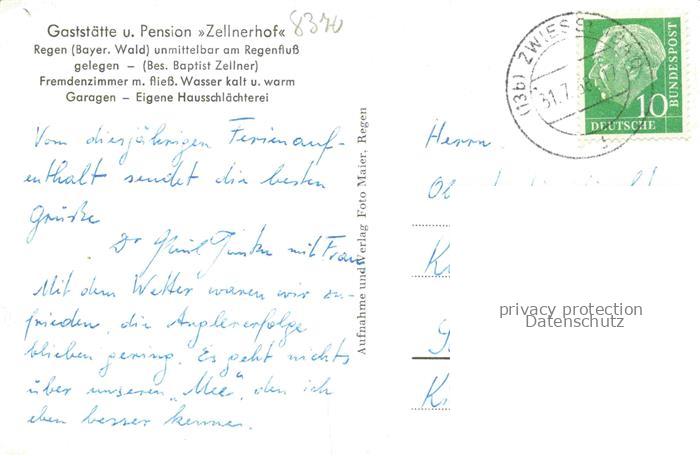 Gaststätte u. Pension »Zellnerhof«
8370
Regen (Bayer. Wald) unmittelbar am Regenfluß
gelegen – (Bes. Baptist Zellner)
Fremdenzimmer m. fließ. Wasser kalt u. warm
Garagen – Eigene Hausschlächterei
Vom diesjährigen Ferienauf-
enthalt sendet die besten
Grüße
Dr. mit Frau
Mit dem Wetter waren wir zu-
frieden, die Anglererfolge
blieben gering. Es geht nichts
über unseren „Mee“, den ich
eben besser kenne.
Aufnahme und Verlag Foto Maier, Regen
(13b) ZWIESEL
31.7.
10
DEUTSCHE
BUNDESPOST
Herrn
privacy protection
Datenschutz